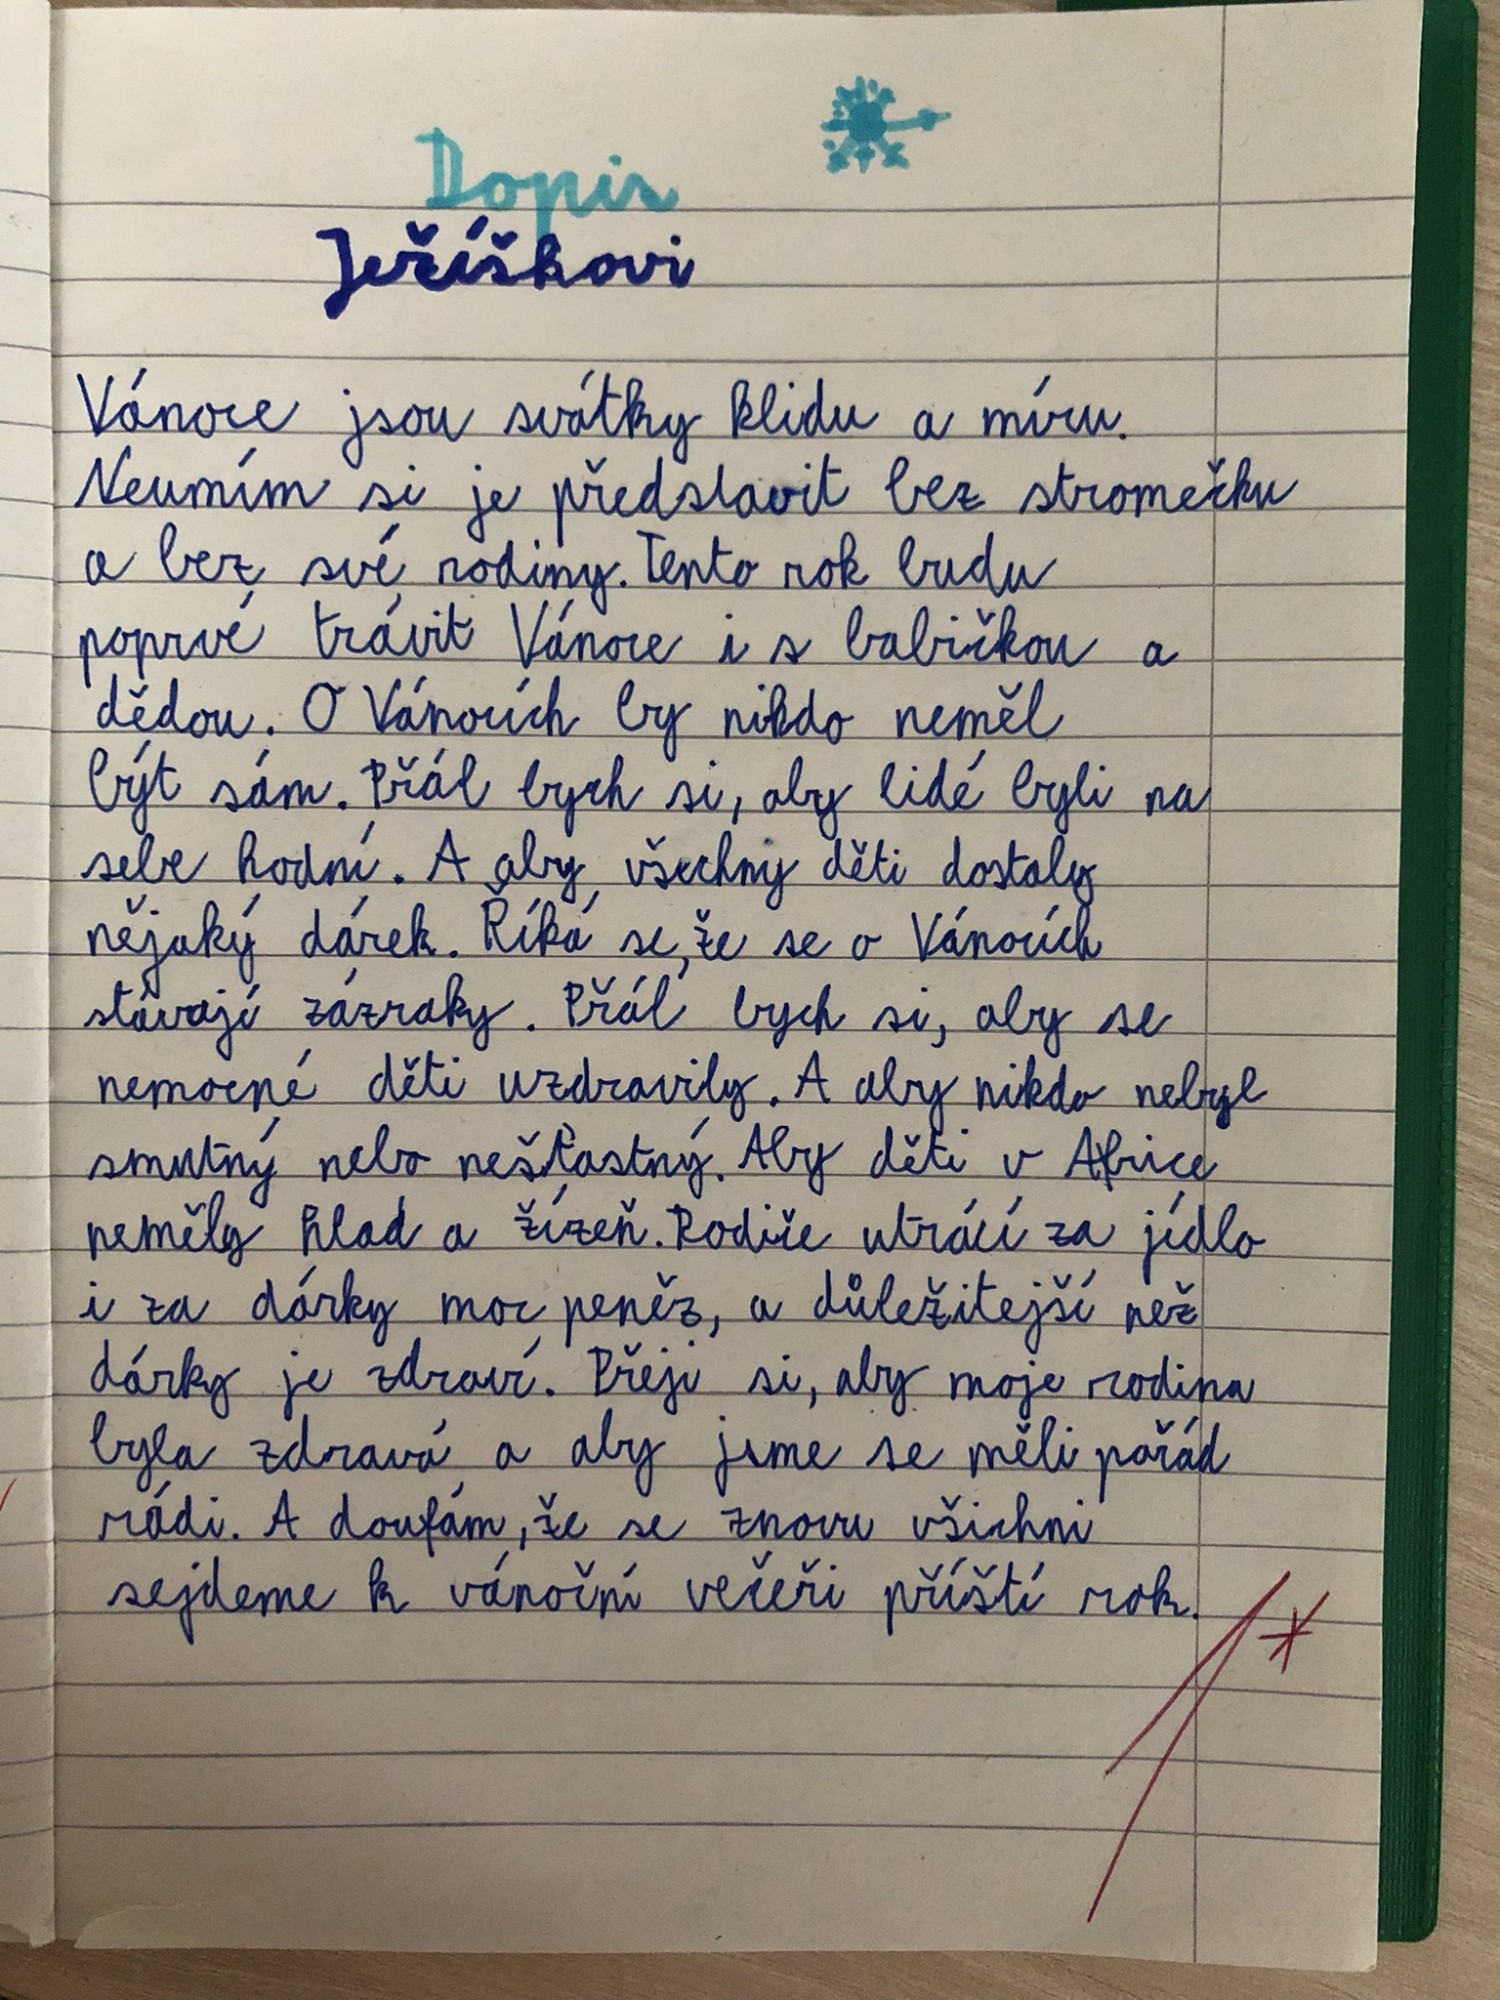 Dopis
Ježíškovi
Vánoce jsou svátky klidu a míru.
Neumím si je předslavit bez stromečku
a bez své rodiny. Tento rok budu
poprvé trávit Vánoce i s babičkou a
dědou. O Vánocích by nikdo neměl
být sám. Přál bych si, aby lidé byli na
sebe hodní. A aby všechny děti dostaly
nějaký dárek. Říká se, že se o Vánocích
stávají zázraky. Přál bych si, aby se
nemocné děti uzdravily. A aby nikdo nebyl
smutný nebo nešťastný. Aby děti v Africe
neměly hlad a žízeň. Rodiče utrácí za jídlo
i za dárky moc peněz, a důležitejší než
dárky je zdraví. Přeji si, aby moje rodina
byla zdravá a aby jsme se měli pořád
rádi. A doufám, že se znovu všichni
sejdeme k vánoční večeři příští rok.
1*